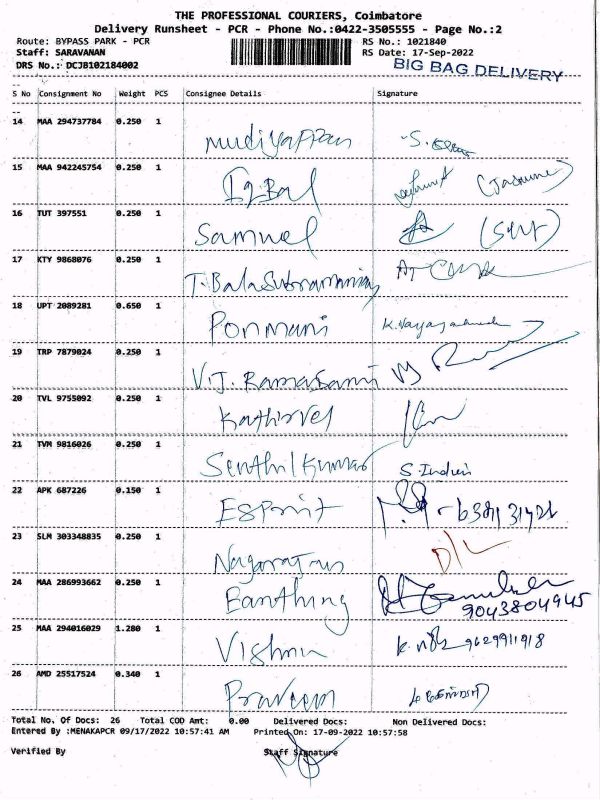 THE PROFESSIONAL COURIERS, Coimbatore
Delivery Runsheet - PCR - Phone No.:0422-3505555 - Page No.:2
Route: BYPASS PARK - PCR RS No.: 1021840
Staff: SARAVANAN RS Date: 17-Sep-2022
DRS No.: DCJB102184002 BIG BAG DELIVERY
S No Consignment No Weight PCS Consignee Details Signature
14 MAA 294737784 0.250 1 Mudiyappan
15 MAA 942245754 0.250 1 Iqbal
16 TUT 397551 0.250 1 Samuel
17 KTY 9868076 0.250 1 T. Bala Subramaniay
18 UPT 2089281 0.650 1 Ponmani
19 TRP 7879024 0.250 1 V.J. Ramasami
20 TVL 9755092 0.250 1 Kathirvel
21 TVM 9816026 0.250 1 Senthil Kumar
22 APK 687226 0.150 1 Esprit
23 SLM 303348835 0.250 1 D/L
24 MAA 286993662 0.250 1 Earthing
9043804945
25 MAA 294016029 1.280 1 Vishnu 9629911918
26 AMD 25517524 0.340 1 Praveen
Total No. Of Docs: 26 Total COD Amt: 0.00 Delivered Docs: Non Delivered Docs:
Entered By :MENAKAPCR 09/17/2022 10:57:41 AM Printed On: 17-09-2022 10:57:58
Verified By Staff Signature